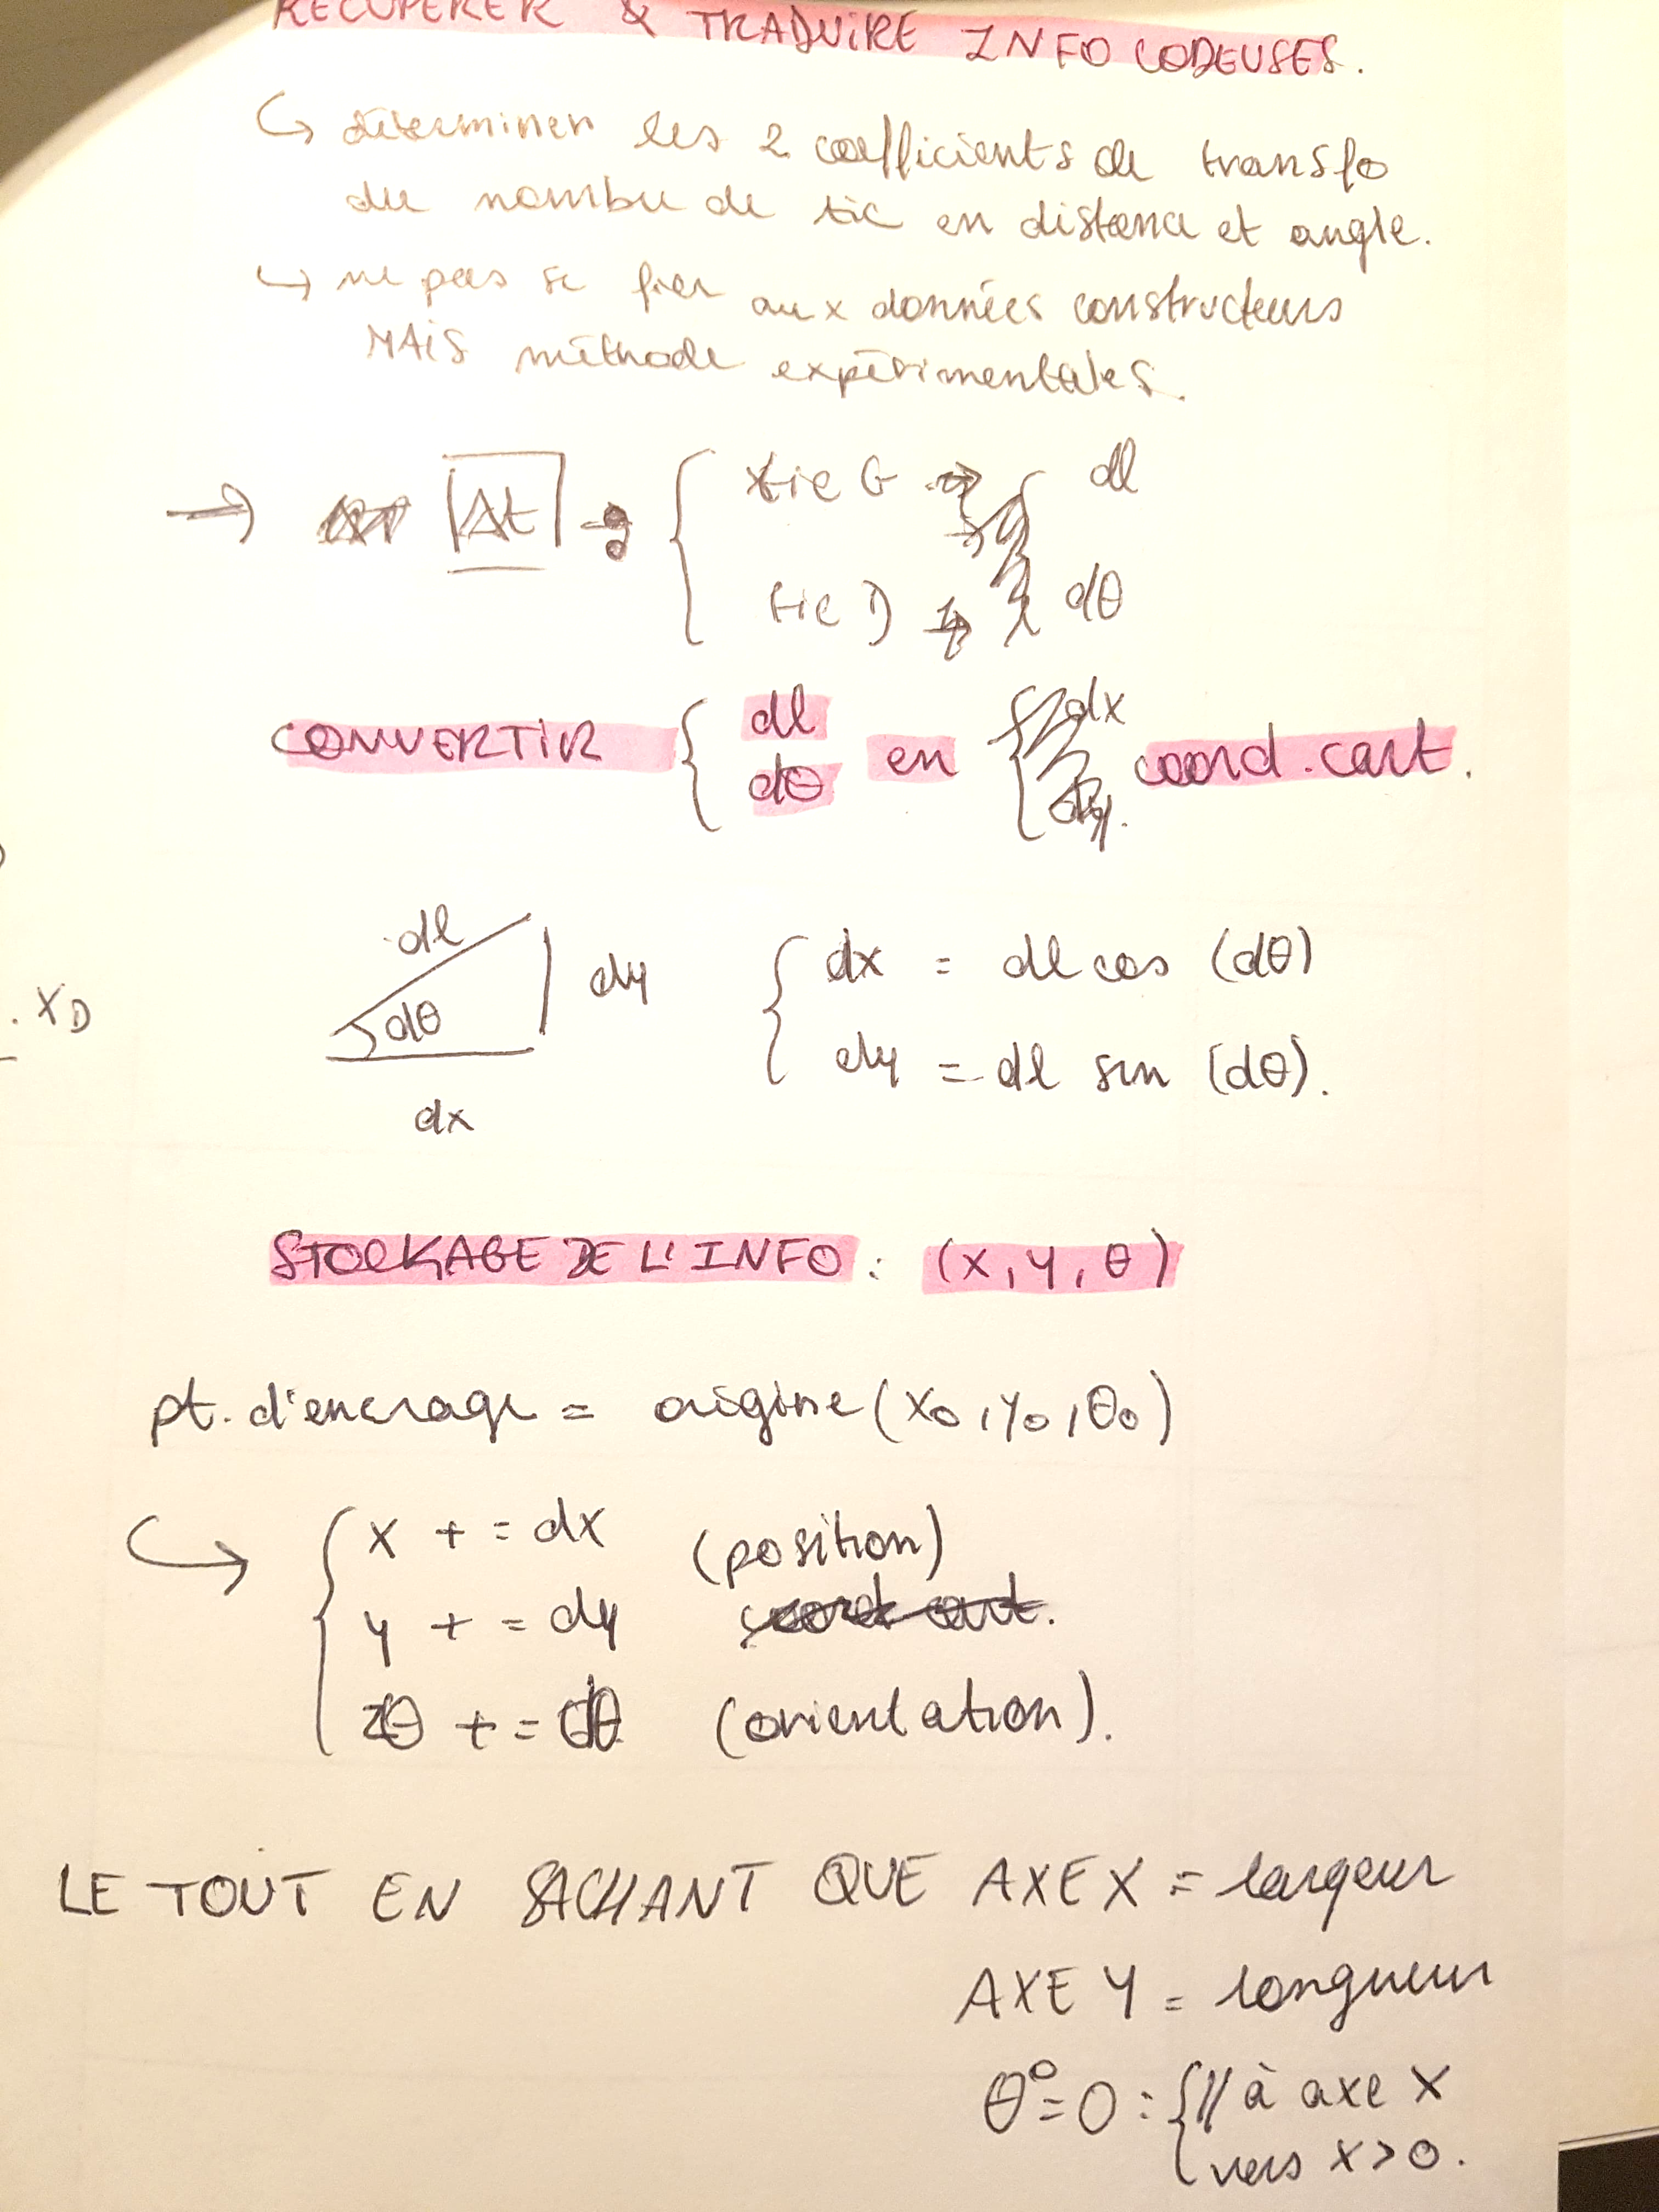 RECUPERER & TRADUIRE INFO CODEUSES.
↳ déterminer les 2 coefficients de transfo
du nombre de tic en distance et angle.
↳ ne pas se fier aux données constructeurs
MAIS méthode expérimentales.
→ Δt → { tic G → dl
tic D → dθ
CONVERTIR { dl dθ en coord. cart.
dl
dθ
dy
dx
{ dx = dl cos (dθ)
dy = dl sin (dθ).
. XD
STOCKAGE DE L'INFO : (x, y, θ)
pt. d'encrage = origine (x0, y0, θ0)
↳ { x += dx (position)
y += dy
θ += dθ (orientation).
LE TOUT EN SACHANT QUE AXE X = largeur
AXE Y = longueur
θ°=0 : { // à axe X
vers x>0.